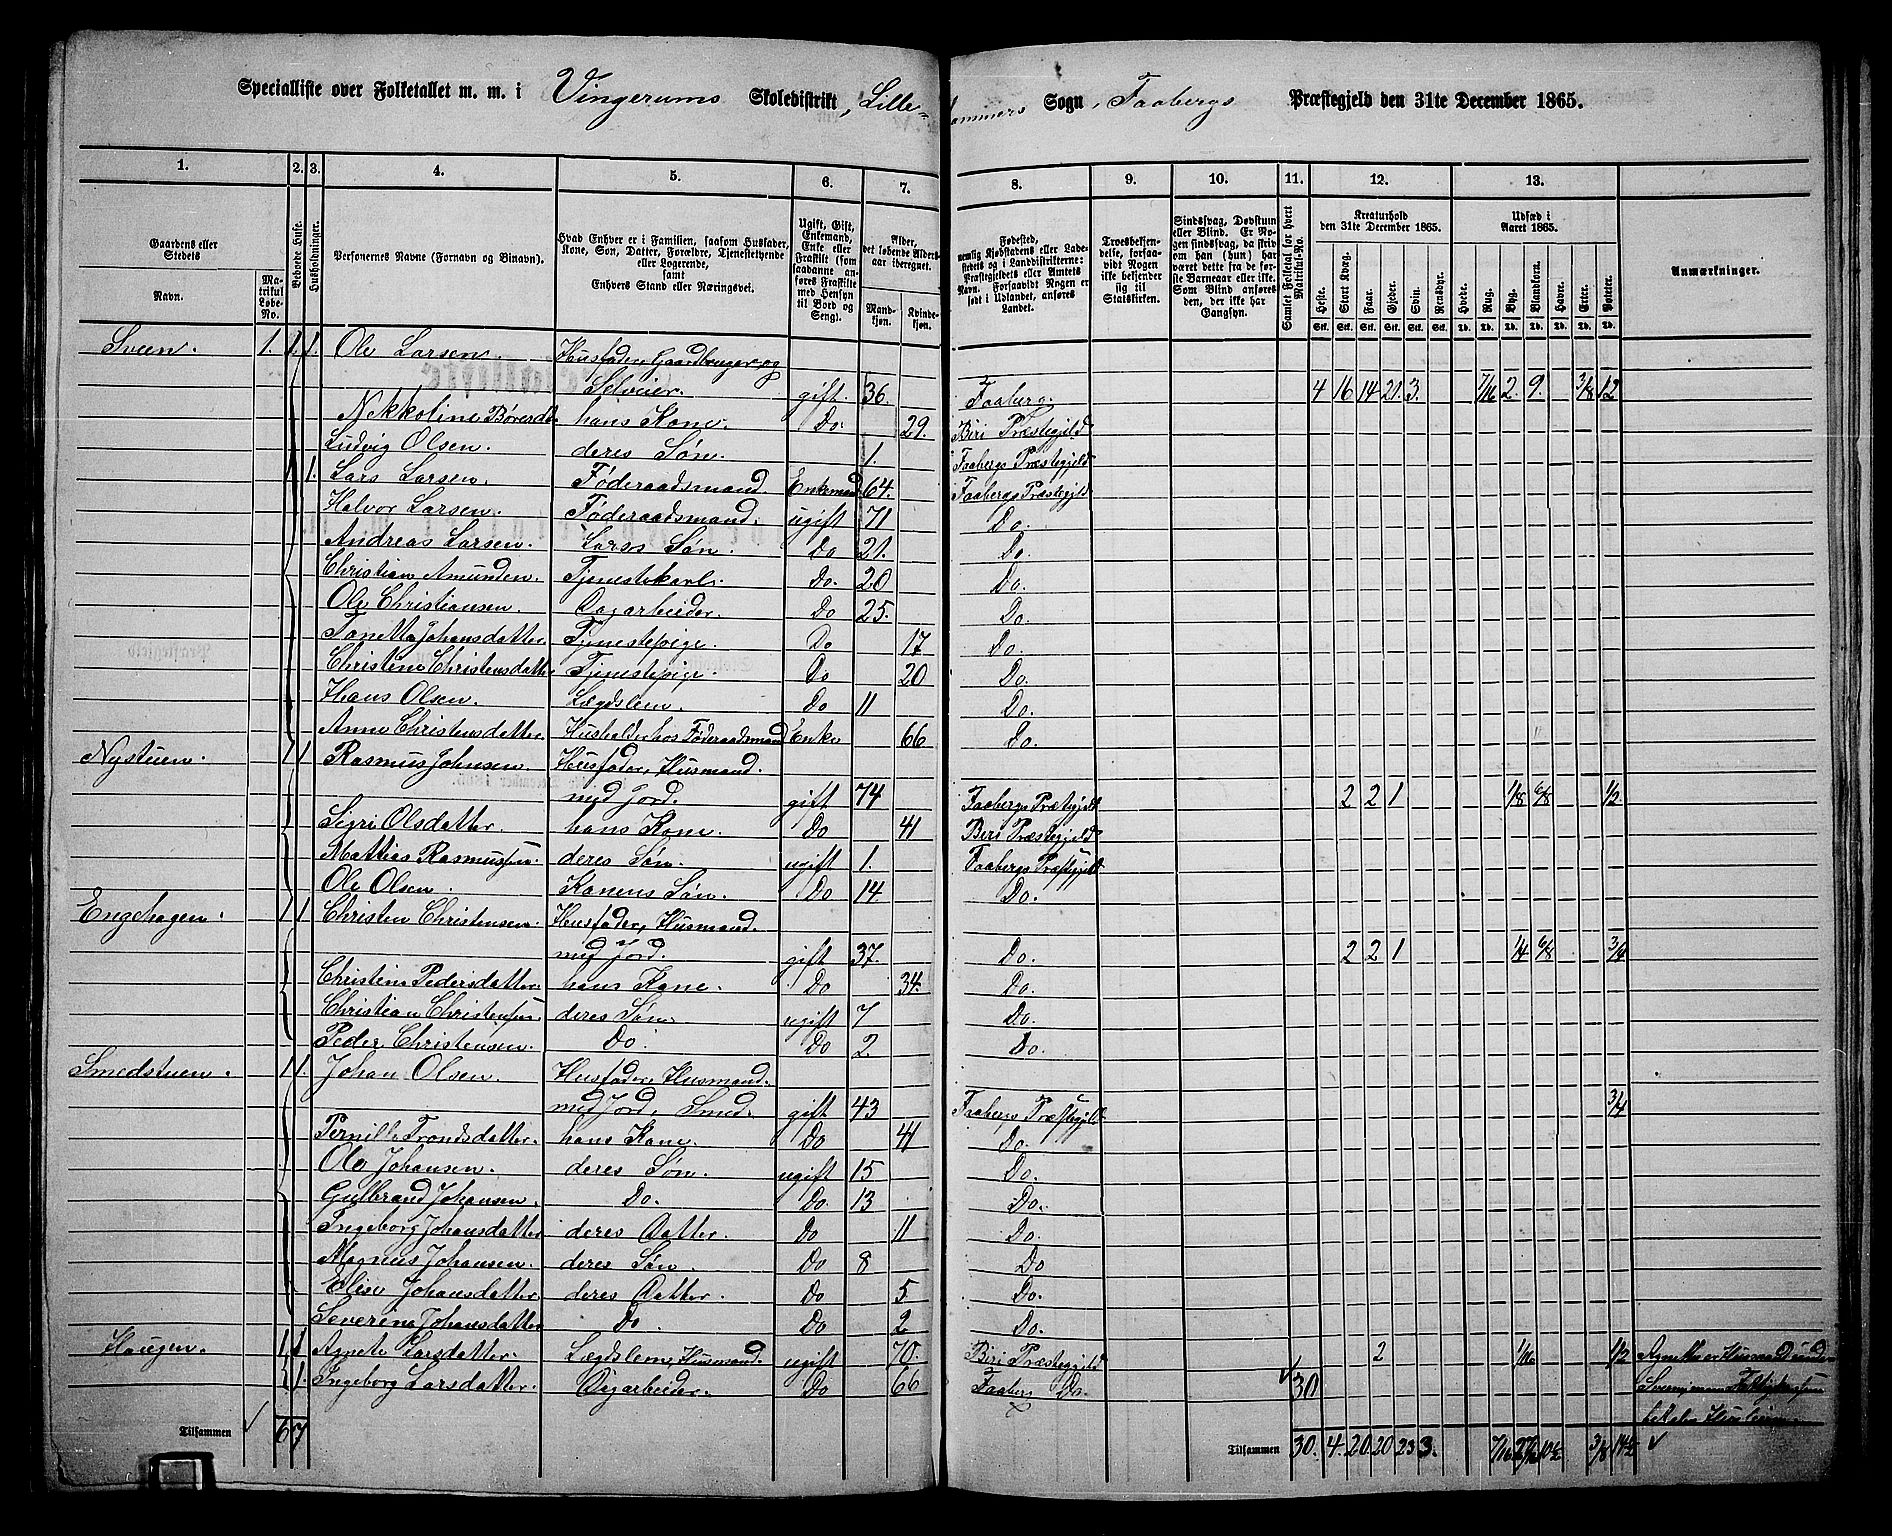 Specialliste over Folketallet m. m. i Vingerums Skoledistrikt, Lille- hammers Sogn, Faabergs Præstegjeld den 31te December 1865.
1. 2. 3. 4. 5. 6. 7. 8. 9. 10. 11. 12. 13.
Gaardens eller Stedets Navn.
Matrikul Løbe-No.
Beboede Huse.
Husholdninger.
Personernes Navne (Fornavn og Binavn).
Hvad Enhver er i Familien, saasom Husfader, Kone, Søn, Datter, Forældre, Tjenestetyende eller Logerende, samt Enhvers Stand eller Næringsvei.
Ugift, Gift, Enkemand, Enke eller Fraskilt (som saadanne anføres Fraskilte med Hensyn til Bord og Seng).
Alder, det løbende Aldersaar iberegnet.
Mandkjøn. Kvindekjøn.
Fødested, nemlig Kjøbstadens eller Ladestedets og i Landdistrikterne: Præstegjeldets eller Amtets Navn. Forsaavidt Nogen er født i Udlandet, anføres Landet.
Troesbekjendelse, forsaavidt Nogen ikke bekjender sig til Statskirken.
Sindssvag, Døvstum eller Blind. Er Nogen sindssvag, da skriv om han (hun) har været dette fra de første Barneaar eller ikke. Som Blind anføres den, der ikke har Gangsyn.
Samlet Folketal for hvert Matrikul-No.
Kreaturhold den 31te December 1865.
Heste. Stort Kvæg. Faar. Gjeder. Svin. Rensdyr.
Udsæd i Aaret 1865.
Hvede. Rug. Byg. Blandkorn. Havre. Erter. Poteter.
Anmærkninger.
Stk. Stk. Stk. Stk. Stk. Stk. Td. Td. Td. Td. Td. Td. Td.
Sveen. 1. 1. 1. Ole Larsen. Husfader, Gaardbruger og
Selveier. gift. 36. Faaberg. 4 16 14 21. 3. 7/16 2. 9. 3/8 12
Nekkoline Børresdt. hans Kone. Do. 29. Biri Præstegjeld
Ludvig Olsen. deres Søn. 1. Faabergs Præstegjeld
1. Lars Larsen. Føderaadsmand. Enkemand 64. Faabergs Præstegjeld
Halvor Larsen. Føderaadsmand. ugift 71 Do.
Andreas Larsen. Larss Søn. Do 21. Do.
Christian Amunden. Tjenestekarl. Do. 20 Do.
Ole Christiansen. Dagarbeider. Do 25. Do.
Tonetta Johansdatter. Tjenestepige. Do 17 Do.
Christine Christensdatter Tjenestepige. Do 20 Do.
Hans Olsen. Lægdslem. Do 11 Do.
Anne Christensdatter. Husholder hos Føderaadsmand Enke 66 Do.
Nystuen. 1 1 Rasmus Johnsen. Husfader, Husmand.
med Jord. gift 74 Faabergs Præstegjeld 2 2 1 1/8 6/8 1/2
Sigri Olsdatter. hans Kone. Do 41 Biri Præstegjeld
Mattias Rasmussen. deres Søn. ugift 1. Faabergs Præstegjeld
Ole Olsen. Konens Søn. Do 14. Do.
Engehagen. 1 1 Christen Christensen. Husfader, Husmand.
med Jord. gift 37. Do. 2 2 1 1/4 6/8 3/4
Christine Pedersdatter. hans Kone. Do 34. Do.
Christian Christensen. deres Søn. ugift 7 Do.
Peder Christensen. Do. Do 2. Do.
Smedstuen. 1 1. Johan Olsen. Husfader, Husmand.
med Jord, Smed. gift 43 Faabergs Præstegjeld 3/4
Pernille Trondsdatter. hans Kone. Do 41 Do.
Ole Johansen. deres Søn. ugift 15 Do.
Gulbrand Johansen. Do. Do. 13 Do.
Ingeborg Johansdatter deres Datter. Do 11 Do.
Magnus Johansen. deres Søn. Do 8 Do
Elise Johansdatter. deres Datter. Do 5 Do.
Severina Johansdatter Do. Do 2 Do.
Haugen. 1 1 Agnete Larsdatter. Lægdslem, Husmand. ugift 70. Biri Præstegjeld 2 1/16 1/2
1. Ingeborg Larsdatter. Dagarbeider. Do 66 Faaberg Do. 30
Tilsammen 6 7
Tilsammen 30. 4. 20. 20 23 3. 7/16 3/8